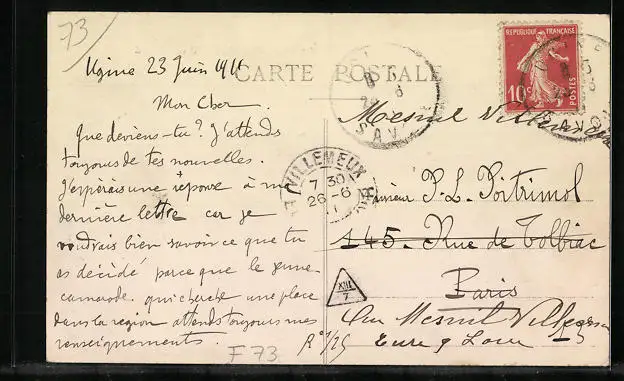 73/
Ugine 23 Juin 1911
CARTE POSTALE
Mon Cher
Que deviens-tu? J'attends
toujours de tes nouvelles.
J'espérais une réponse à ma
dernière lettre car je
voudrais bien savoir ce que tu
as décidé parce que le jeune
camarade qui cherche une place
dans la région attends toujours mes
renseignements.
F 73
RÉPUBLIQUE FRANÇAISE
10c
POSTES
SAV.
VILLEMEUX
7 30
26-6
Mesnil
P. L. Poitrimol
145 - Rue de Tolbiac
Paris
XIII
7
Au Mesnil
Eure & Loir